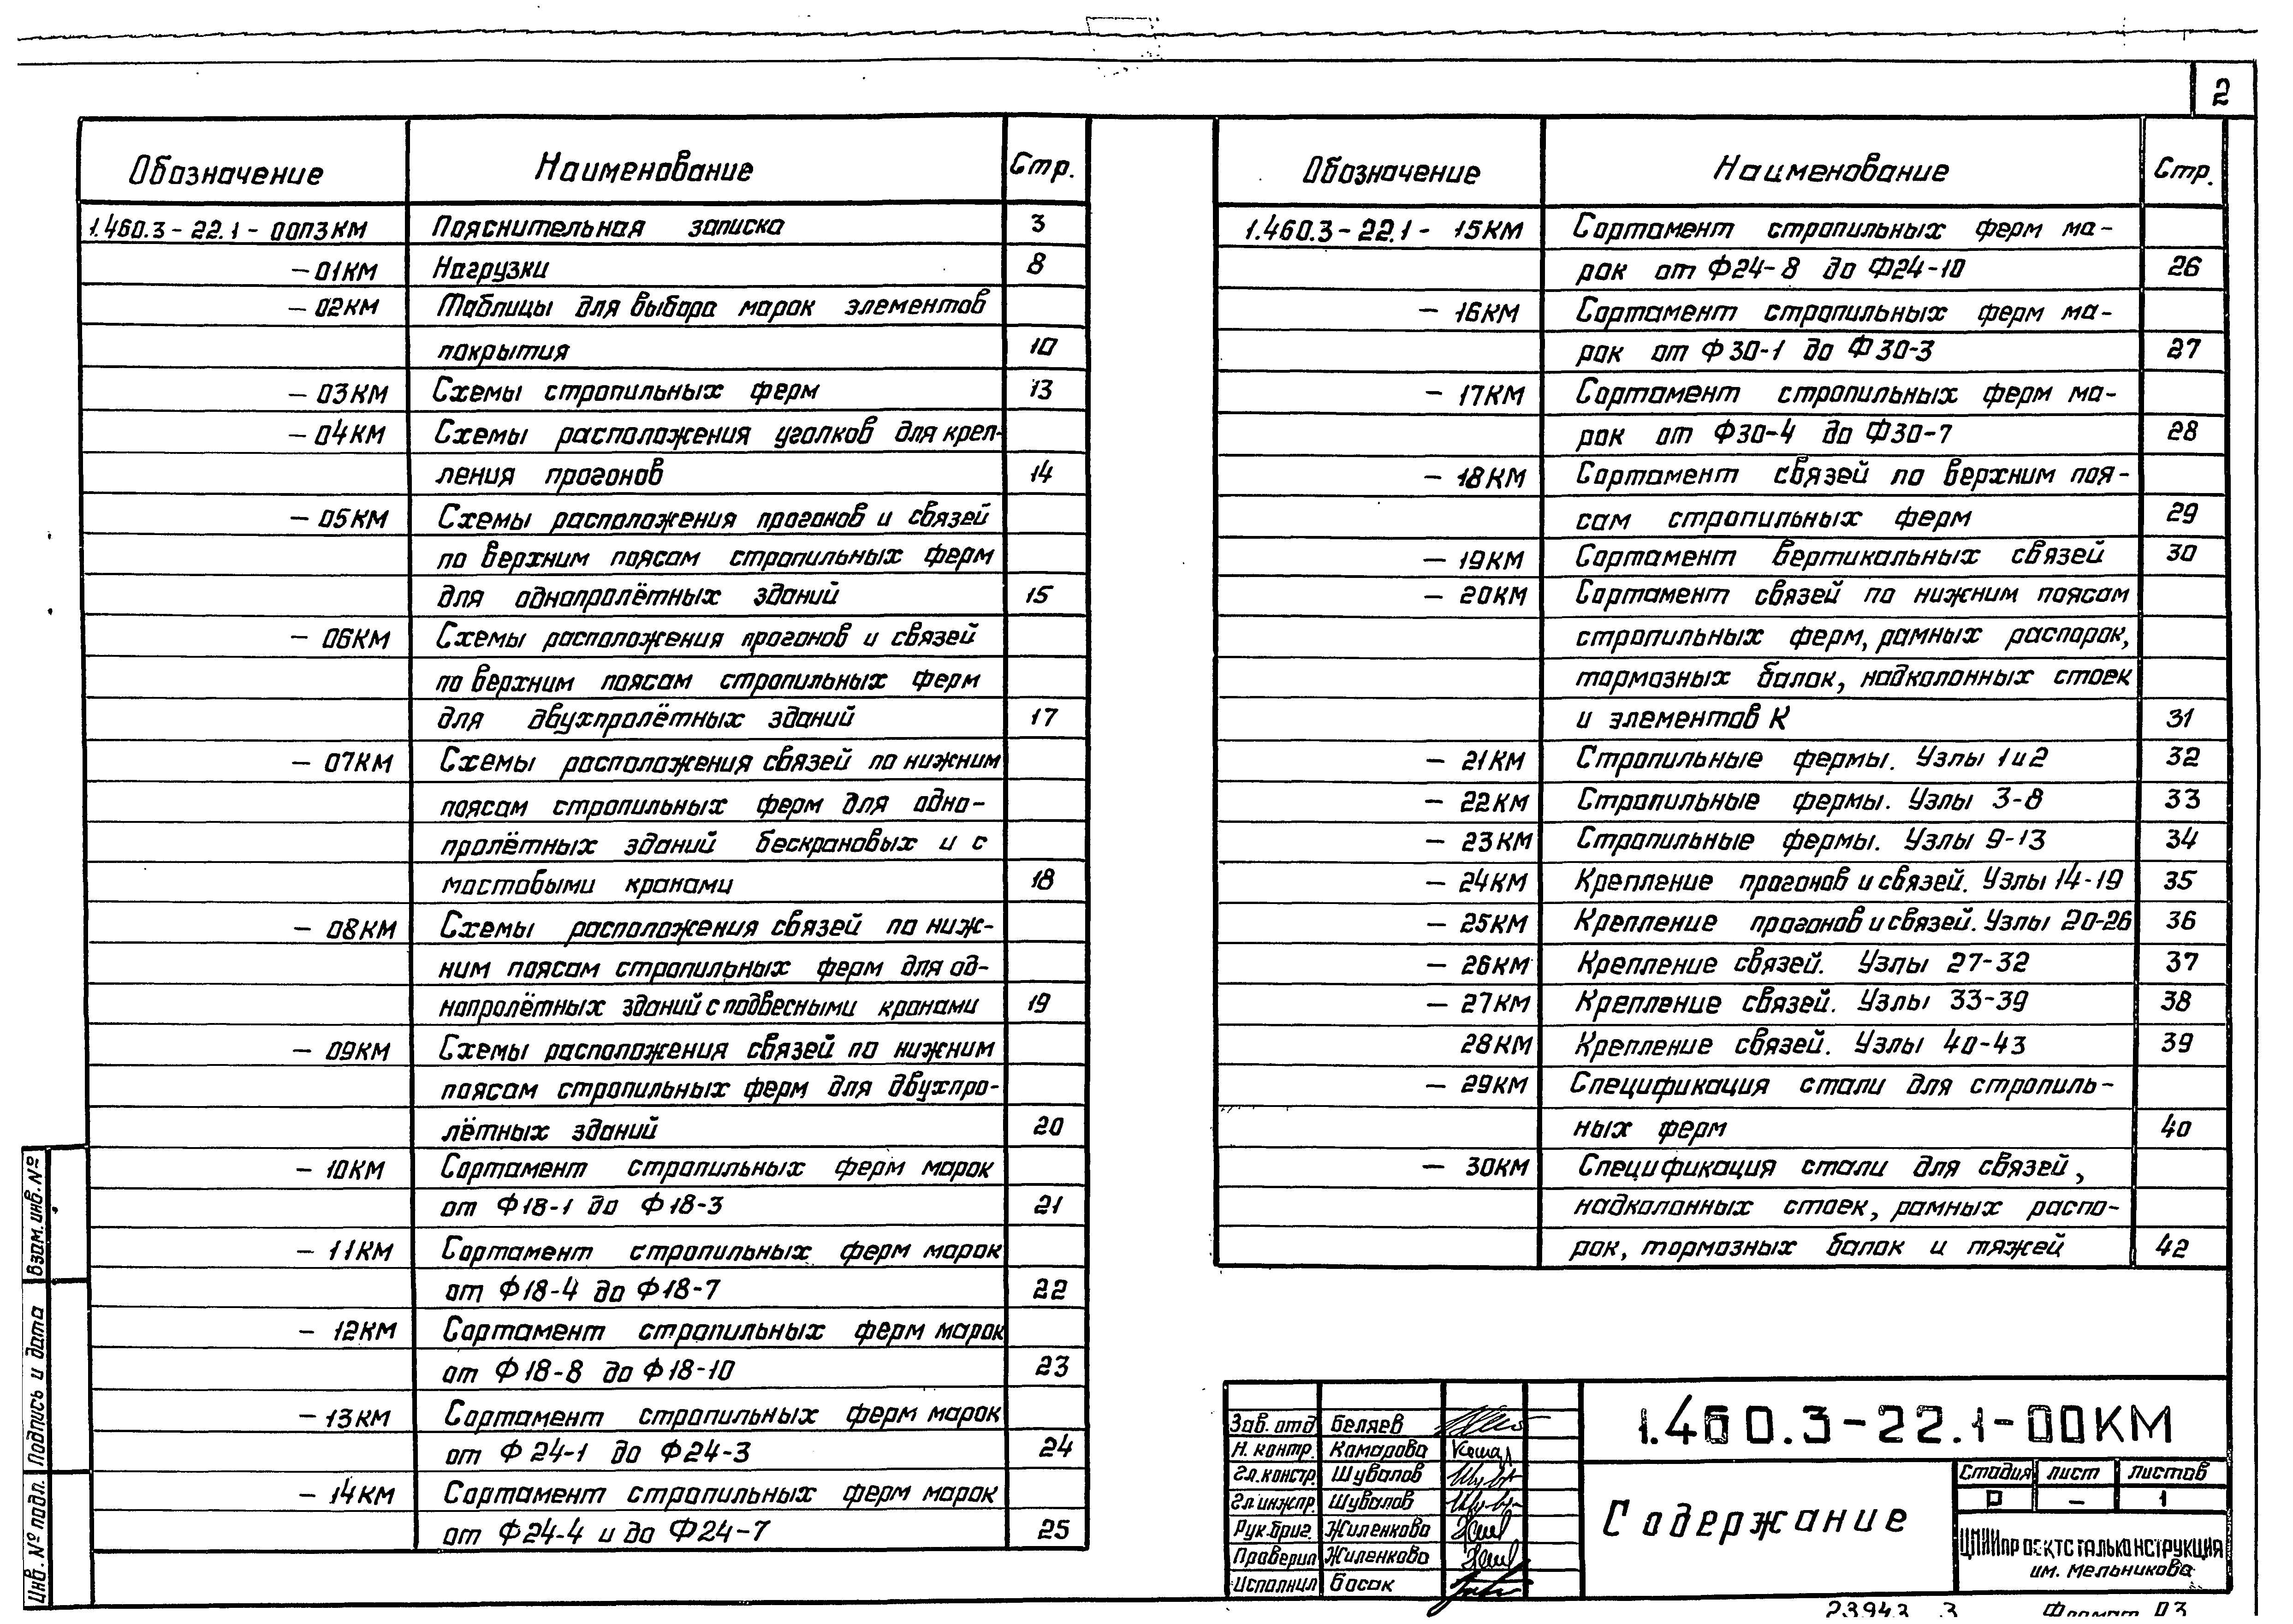 2
Обозначение Наименование Стр.
1.460.3-22.1-00ПЗКМ Пояснительная записка 3
- 01КМ Нагрузки 8
- 02КМ Таблицы для выбора марок элементов
покрытия 10
- 03КМ Схемы стропильных ферм 13
- 04КМ Схемы расположения уголков для креп-
ления прогонов 14
- 05КМ Схемы расположения прогонов и связей
по верхним поясам стропильных ферм
для однопролётных зданий 15
- 06КМ Схемы расположения прогонов и связей
по верхним поясам стропильных ферм
для двухпролётных зданий 17
- 07КМ Схемы расположения связей по нижним
поясам стропильных ферм для одно-
пролётных зданий бескрановых и с
мостовыми кранами 18
- 08КМ Схемы расположения связей по ниж-
ним поясам стропильных ферм для од-
нопролётных зданий с подвесными кранами 19
- 09КМ Схемы расположения связей по нижним
поясам стропильных ферм для двухпро-
лётных зданий 20
- 10КМ Сортамент стропильных ферм марок
от Ф18-1 до Ф18-3 21
- 11КМ Сортамент стропильных ферм марок
от Ф18-4 до Ф18-7 22
- 12КМ Сортамент стропильных ферм марок
от Ф18-8 до Ф18-10 23
- 13КМ Сортамент стропильных ферм марок
от Ф24-1 до Ф24-3 24
- 14КМ Сортамент стропильных ферм марок
от Ф24-4 и до Ф24-7 25
Обозначение Наименование Стр.
1.460.3-22.1- 15КМ Сортамент стропильных ферм ма-
рок от Ф24-8 до Ф24-10 26
- 16КМ Сортамент стропильных ферм ма-
рок от Ф30-1 до Ф30-3 27
- 17КМ Сортамент стропильных ферм ма-
рок от Ф30-4 до Ф30-7 28
- 18КМ Сортамент связей по верхним поя-
сам стропильных ферм 29
- 19КМ Сортамент вертикальных связей 30
- 20КМ Сортамент связей по нижним поясам
стропильных ферм, рамных распорок,
тормозных балок, надколонных стоек
и элементов К 31
- 21КМ Стропильные фермы. Узлы 1и2 32
- 22КМ Стропильные фермы. Узлы 3-8 33
- 23КМ Стропильные фермы. Узлы 9-13 34
- 24КМ Крепление прогонов и связей. Узлы 14-19 35
- 25КМ Крепление прогонов и связей. Узлы 20-26 36
- 26КМ Крепление связей. Узлы 27-32 37
- 27КМ Крепление связей. Узлы 33-39 38
28КМ Крепление связей. Узлы 40-43 39
- 29КМ Спецификация стали для стропиль-
ных ферм 40
- 30КМ Спецификация стали для связей,
надколонных стоек, рамных распо-
рок, тормозных балок и тяжей 42
Взам. инв. №
Подпись и дата
Инв. № подл.
Зав. отд Беляев
Н. контр. Комарова
Гл. констр. Шувалов
Гл. инж пр. Шувалов
Рук. бриг. Жиленкова
Проверил Жиленкова
Исполнил Босак
1.460.3-22.1-00КМ
Содержание
Стадия лист листов
Р - 1
ЦНИИпроектстальконструкция
им. Мельникова
23943 3 Формат А3